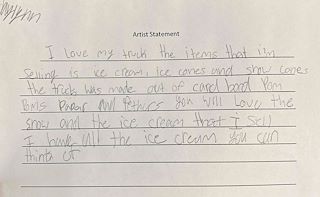 Artist Statement
I Love my truck the items that I'm
Selling is ice cream, ice cones and snow cones
the truck was made out of card bord Pom
Poms Paper and fethers you will Love the
snow and the ice cream that I Sell
I have all the ice cream you can
think of